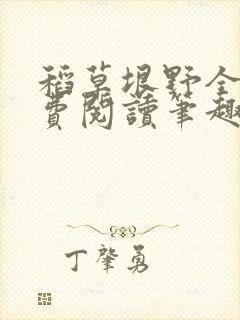 稻草垠野全
費閱讀筆趣
丁肇勇